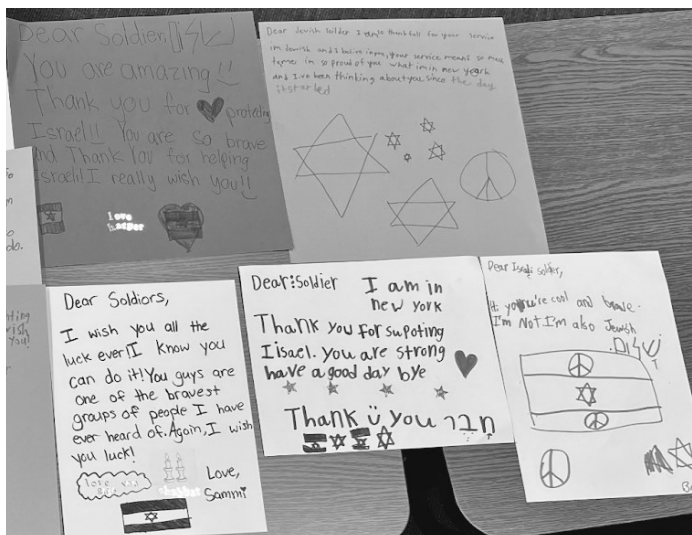 Dear Soldier,
You are amazing!!
Thank you for protecting
Israel!! You are so brave
and Thank You for helping
Israel! I really wish you!!
love
harper
Dear Jewish Solder I am so thankfull for your service
im Jewish and I belive in you, your service means so much
to me im so proud of you what im in new york
and I've been thinking about you since the day
it started
do.
ting
ish
you!
Dear Soldiors,
I wish you all the
luck ever! I know you
can do it! You guys are
one of the bravest
groups of people I have
ever heard of. Again, I wish
you luck!
love
Love,
Sammi
Dear Soldier I am in
new york
Thank you for supoting
Iisael. you are strong
have a good day bye
Thank ü you חבר
Dear Israeli soldier,
Hi you're cool and brave.
I'm Not I'm also Jewish
שלום